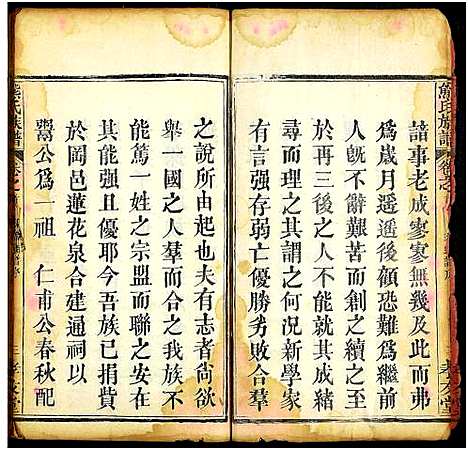 熊氏族譜
諳事老成寥寥無幾及此而弗
為歲月遥遥後顧恐難為繼前
人既不辭艱苦而創之續之至
於再三後之人何以爲其成緒
尋而理之其謂之何况新學家
有言强存弱亡優勝劣敗合羣
之說所由起也夫有志者尚欲
舉一國之人羣而合之我族不
能篤一姓之宗盟而聯之安在
其能强且優耶今吾族已捐貲
於岡邑蓮花泉合建通祠以
鬻公爲一祖 仁甫公春秋配
熊氏族譜